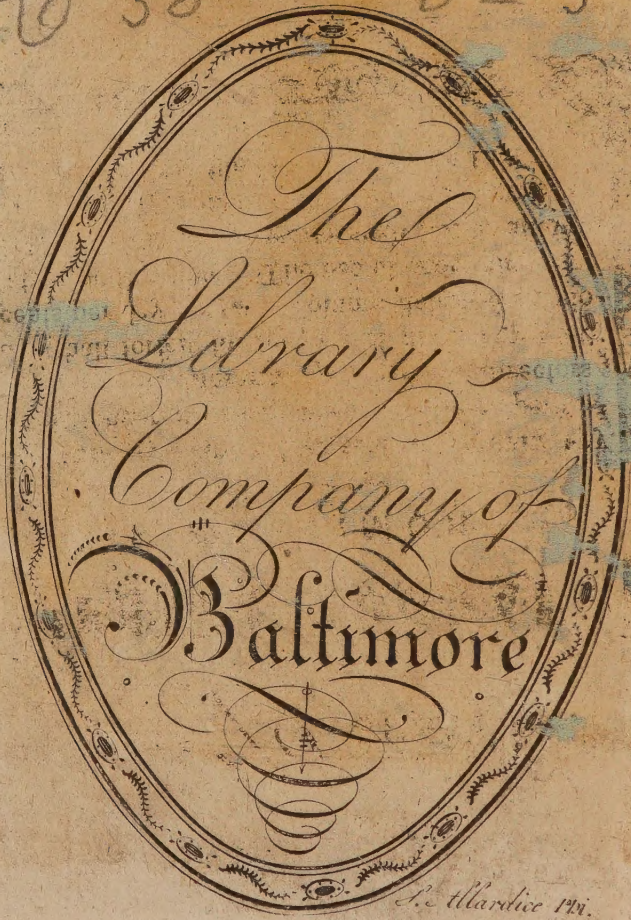 The
Library
Company of
Baltimore
S. Allardice